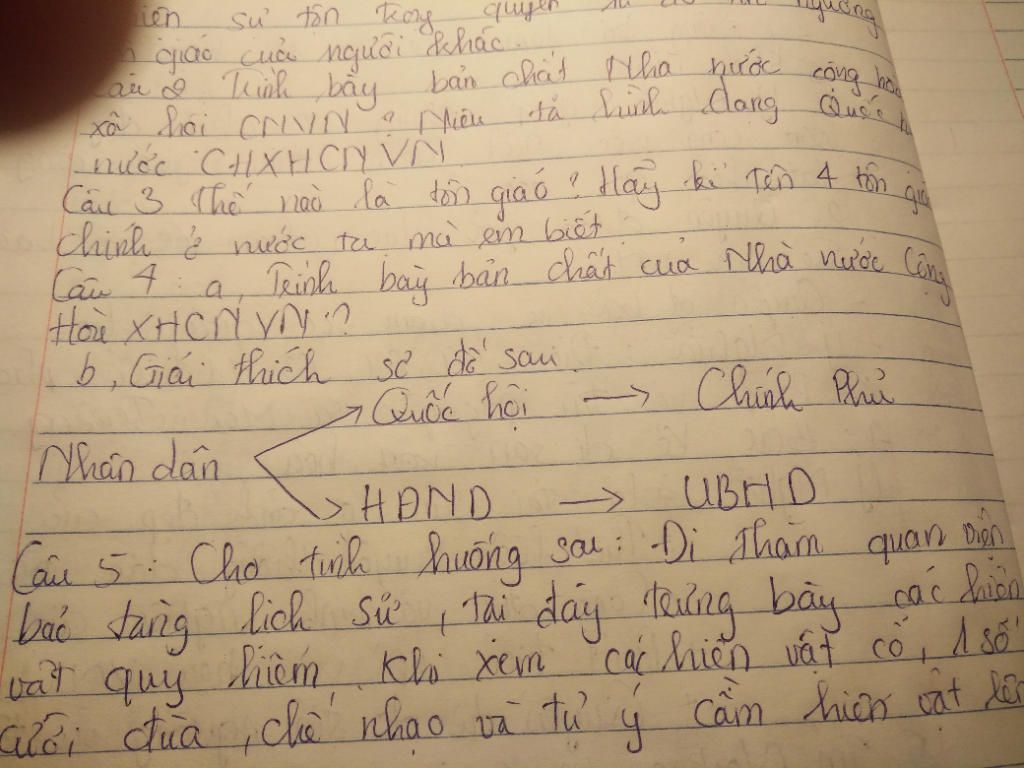 hiện sự tôn trọng quyền
giáo của người khác.
Câu 2 Trình bày bản chất Nhà nước cộng hoà
xã hội CNVN? Miêu tả hình dạng Quốc
nước CHXHCNVN
Câu 3 Thế nào là tôn giáo? Hãy kể tên 4 tôn giáo
chính ở nước ta mà em biết
Câu 4: a, Trình bày bản chất của Nhà nước Cộng
Hoà XHCNVN?
b, Giải thích sơ đồ sau
Quốc hội → Chính Phủ
Nhân dân
HĐND → UBHD
Câu 5: Cho tình huống sau: Đi thăm quan viện
bảo tàng lịch sử, tại đây trưng bày các hiện
vật quy hiếm, khi xem các hiện vật cổ, 1 số
cười đùa, chế nhạo và tự ý cầm hiện vật lên